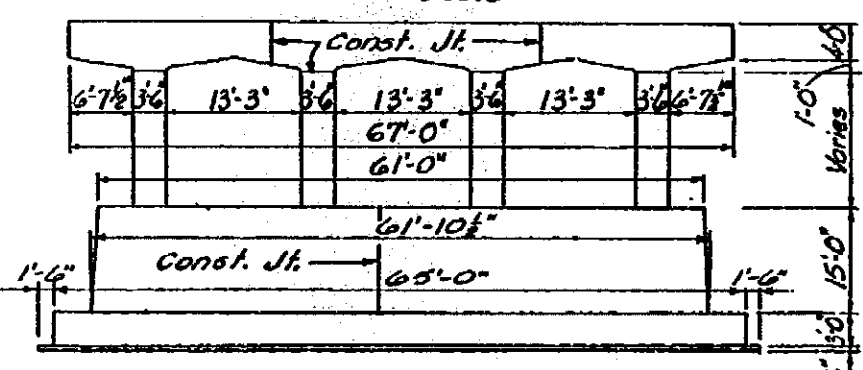 Const. Jt.
6'-7½" 3'-6" 13'-3" 3'-6" 13'-3" 3'-6" 13'-3" 3'-6" 6'-7½"
67'-0"
61'-0"
61'-10½"
Const. Jt.
65'-0"
1'-6" 1'-6"
4'-0"
1'-0"
Varies
15'-0"
3'-0"